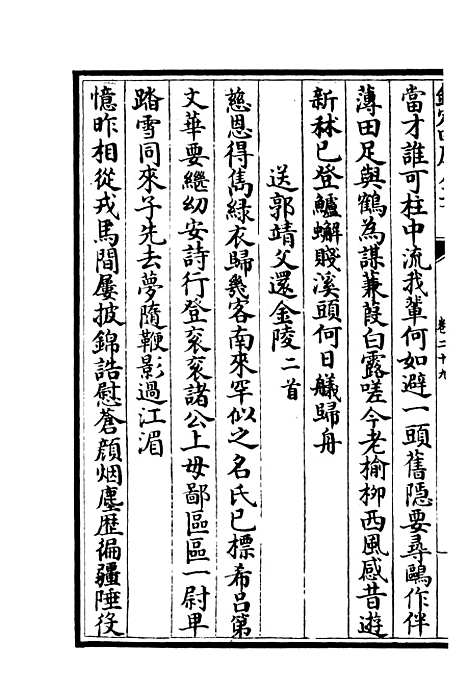 卷二十九
當才誰可柱中流我輩何如避一頭舊隱要尋鷗作伴
薄田足與鶴為謀蒹葭白露嗟今老榆柳西風感昔遊
新秫已登鱸蠏賤溪頭何日艤歸舟
送郭靖父還金陵二首
慈恩得雋綠衣歸幾客南來罕似之名氏已標希吕第
文華要繼幼安詩行登衮衮諸公上毋鄙區區一尉卑
踏雪同來子先去夢隨鞭影過江湄
憶昨相從戎馬間屢披錦誥慰蒼顔烟塵歴徧疆陲役